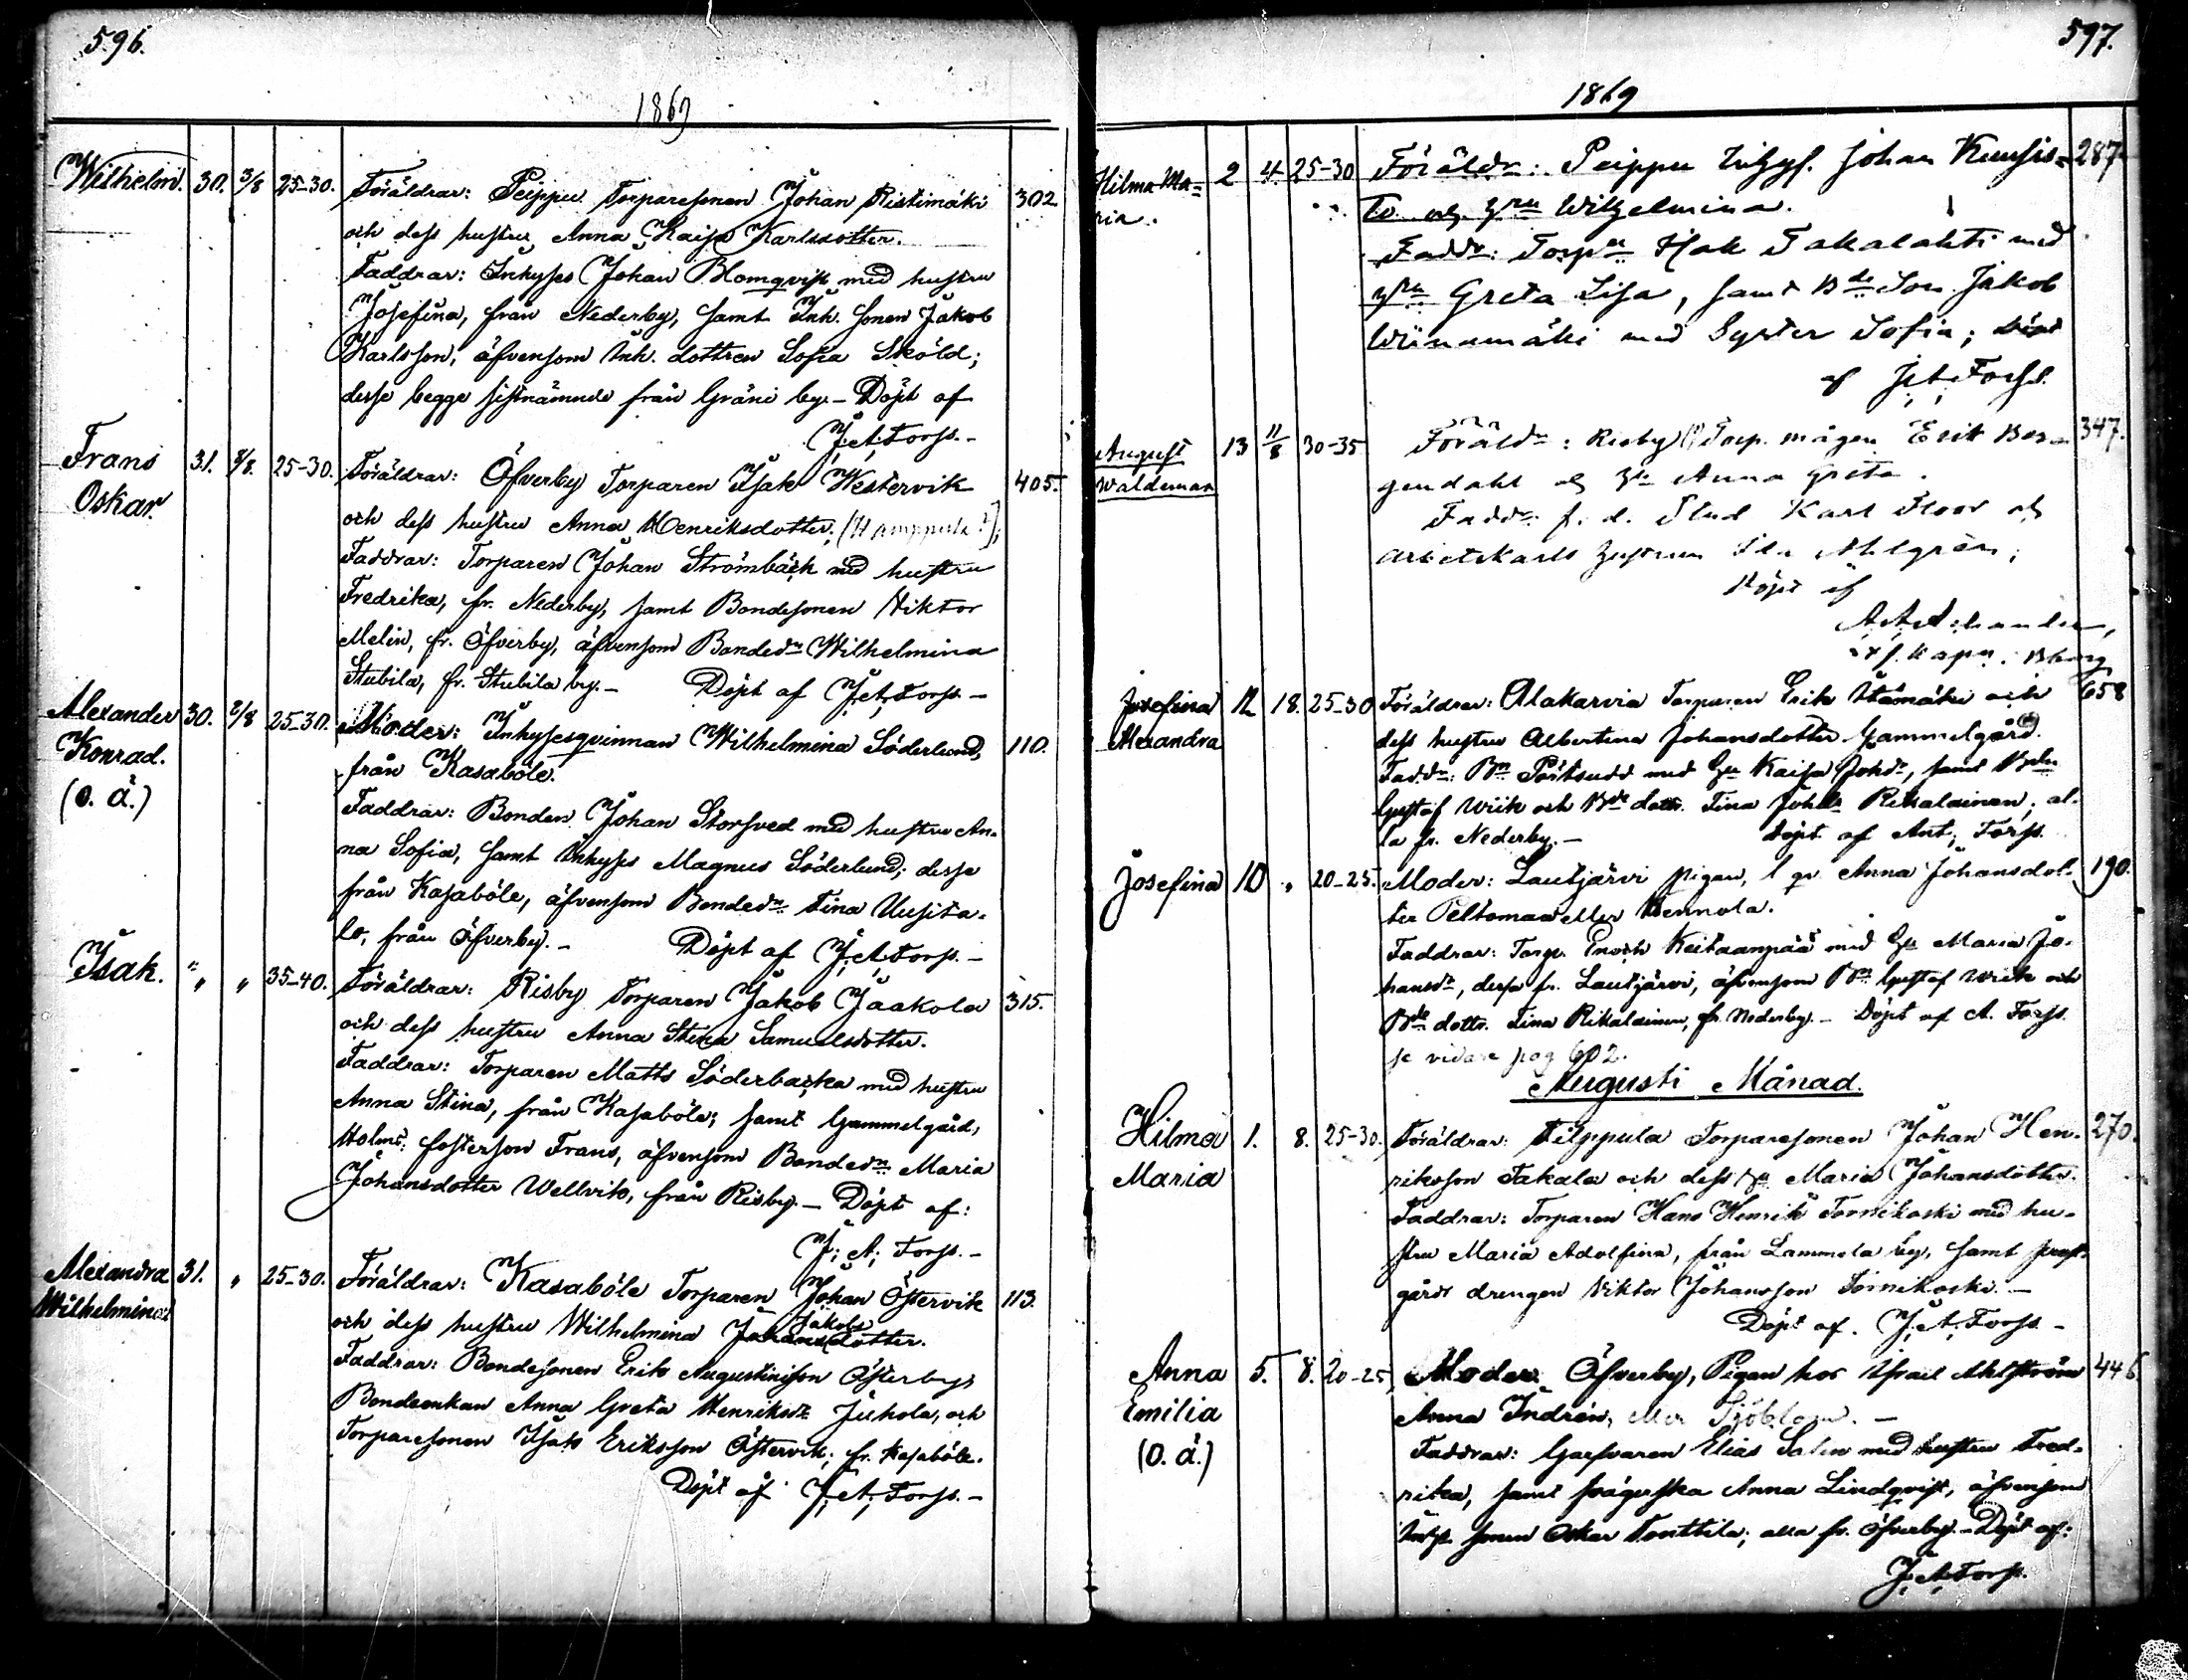 596.
1869
Wilhelm. 30. 3/8 25-30. Föräldrar: Peippu Torparesonen Johan Ristimäki 302
och dess hustru Anna Kaisa Karlsdotter.
Faddrar: Inhyses Johan Blomqvist med hustru
Josefina, från Nederby, samt Inh. sonen Jakob
Karlsson, äfvensom Inh. dottren Sofia Sköld;
desse begge sistnämnde från Gräni by. – Döpt af
J. A. Forss. –
Frans 31. 8/8. 25-30. Föräldrar: Öfverby Torparen Isak Westervik 405.
Oskar. och dess hustru Anna Henriksdotter;
Faddrar: Torparen Johan Strömbäck med hustru
Fredrika, fr. Nederby, samt Bondesonen Viktor
Melin, fr. Öfverby, äfvensom Bonded:n Wilhelmina
Stubila, fr. Stubila by. – Döpt af J. A. Forss. –
Alexander 30. 2/8 25-30. Moder: Inhysesqvinnan Wilhelmina Söderlund, 110.
Konrad. från Kasaböle.
(O. ä.) Faddrar: Bonden Johan Storsved med hustru An-
na Sofia, samt Inhyses Magnus Söderlund; desse
från Kasaböle, äfvensom Bonded:n Tina Uusita-
lo, från Öfverby. – Döpt af J. A. Forss. –
Isak. " " 35-40. Föräldrar: Risby Torparen Jakob Jaakola 315.
och dess hustru Anna Stina Samuelsdotter.
Faddrar: Torparen Matts Söderbacka med hustru
Anna Stina, från Kasaböle; samt Gammelgård,
Holms fosterson Frans, äfvensom Bonded:n Maria
Johansdotter Wellvik, från Risby. – Döpt af:
J. A. Forss. –
Alexandra 31. " 25-30. Föräldrar: Kasaböle Torparen Johan Östervik 113.
Wilhelmina och dess hustru Wilhelmina Jakobsdotter.
Faddrar: Bondesonen Erik Augustinsson Österby,
Bondeenkan Anna Greta Henriksd:r Juhola, och
Torparesonen Isak Eriksson Östervik; fr. Kasaböle.
Döpt af J. A. Forss. –
597.
1869
Hilma Ma- 2 4 25-30 Föräldr: Peippu Inhys. Johan Kuusis- 287
ria. to och hru Wilhelmina.
Faddr: Torp:n Isak Takalahti med
hru Greta Lisa, samt B:de Son Jakob
Wiinamäki med Syster Sofia; döpt
af J. A. Forss.
August 13 11/8 30-35 Föräldr: Risby Torp. mågen Erik Ber- 347.
Waldemar gendahl och h:u Anna Greta.
Faddr: f. d. Stud Karl Floor och
arbetskarls hustrun Ahlgrén;
Döpt af
Josefina 12 18. 25-30 Föräldrar: Alakarvia Torparen Erik Ylimäki och 658
Alexandra dess hustru Albertina Johansdotter Gammelgård.
Fadd:r: B:n Pörtsudd med h:u Kaisa Joh:dr, samt
Gustaf Wiik och B:de dottr. Tina Joh:dr Rikalainen; al-
la fr. Nederby. – Döpt af Ant. Forss.
Josefina 10 " 20-25. Moder: Lautjärvi pigan, l. qv. Anna Johansdot- 190.
ter Peltomaa eller Wennola.
Faddrar: Torp. Enoch Keitaanpää med h:u Maria Jo-
hansd:r, desse fr. Lautjärvi, äfvensom B:n Gustaf Wiik och
B:de dottr. Tina Rikalainen, fr. Nederby. – Döpt af A. Forss.
se vidare pag 602.
Augusti Månad.
Hilma 1. 8. 25-30. Föräldrar: Filppula Torparesonen Johan Hen- 270.
Maria riksson Takala och dess h:u Maria Johansdotter.
Faddrar: Torparen Hans Henrik Tornikoski med hu-
stru Maria Adolfina, från Lammela by, samt prest-
gårds drengen Viktor Johansson Tornikoski. –
Döpt af. J. A. Forss. –
Anna 5. 8. 20-25. Moder. Öfverby, Pigan hos Israel Ahlström 446
Emilia Anna Indrén, eller Sjöblom. –
(O. ä.) Faddrar: Garfvaren Elias Salin med hustru Fred-
rika, samt svägerska Anna Lindqvist, äfvensom
Inhys. sonen Oskar Tonttila; alla fr. Öfverby. – Döpt af:
J. A. Forss.